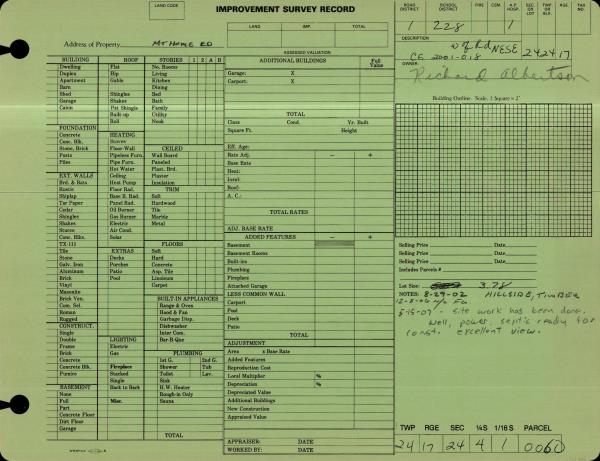 LAND CODE
IMPROVEMENT SURVEY RECORD
LAND IMP. TOTAL
ROAD DISTRICT SCHOOL DISTRICT FIRE CEM. A.P. HOSP. SEC. OR LOT TWP OR BLK. RGE. TAX NO.
1 228 1
Address of Property MT HOME RD
ASSESSED VALUATION
DESCRIPTION
W of Rd NESE 242417
CE 2001-018
OWNER
Richard Albertson
BUILDING ROOF STORIES 1 2 A B
Dwelling Flat No. Rooms
Duplex Hip Living
Apartment Gable Kitchen
Barn Dining
Shed Shingles Bed
Garage Shakes Bath
Cabin Pat Shingle Family
Built-up Utility
Roll Nook
FOUNDATION
Concrete HEATING
Conc. Blk. Stoves CEILED
Stone, Brick Floor-Wall Wall Board
Posts Pipeless Furn. Paneled
Piles Pipe Furn. Plast. Brd.
Hot Water Celling
EXT. WALLS Ceiling Plaster
Brd. & Bats Heat Pump Insulation
Rustic Floor Rad. TRIM
Shiplap Base B. Rad. Soft
Tar Paper Panel Rad. Hardwood
Cedar Oil Burner Tile
Shingles Gas Burner Marble
Shakes Electric Metal
Stucco Air Cond.
Conc. Blks. Solar
TX-111 FLOORS
Tile EXTRAS Soft
Stone Decks Hard
Galv. Iron Porches Concrete
Aluminum Patio Asp. Tile
Brick Pool Linoleum
Vinyl Carpet
Masonite
Brick Ven. BUILT-IN APPLIANCES
Com. Sel. Range & Oven
Roman Hood & Fan
Rugged Garbage Disp.
CONSTRUCT. Dishwasher
Single Inter Com.
Double LIGHTING Bar-B-Que
Frame Electric
Brick Gas PLUMBING
Concrete 1st G. 2nd G.
Concrete Blk. Fireplace Shower Tub
Pumice Stacked Toilet Lav.
Single Sink
BASEMENT Back to Back H.W. Heater
None Rough-in Only
Full Misc. Sauna
Part
Concrete Floor
Dirt Floor
Garage
TOTAL
ADDITIONAL BUILDINGS Full Value
Garage: X
Carport: X
TOTAL
Class Cond. Yr. Built
Square Ft. Height
Eff. Age:
Rate Adj. − +
Base Rate
Heat:
Insul:
Roof:
A. C.:
TOTAL RATES
ADJ. BASE RATE
ADDED FEATURES − +
Basement
Basement Rooms
Built-ins
Plumbing
Fireplace
Attached Garage
LESS COMMON WALL
Carport
Pool
Deck
Patio
TOTAL
ADJUSTMENT
Area x Base Rate
Added Features
Reproduction Cost
Local Multiplier %
Depreciation %
Depreciated Value
Additional Buildings
New Construction
Appraised Value
APPRAISER: DATE
WORKED BY: DATE
Building Outline. Scale, 1 Square = 2'
Selling Price Date
Selling Price Date
Selling Price Date
Includes Parcels #
Lot Size: 3.78
NOTES: 8-29-02 HILLSIDE, TIMBER
5-15-07 - site work has been done.
well, power, septic ready for
const. excellent view.
TWP RGE SEC ¼S 1/16S PARCEL
24 17 24 4 1 0060